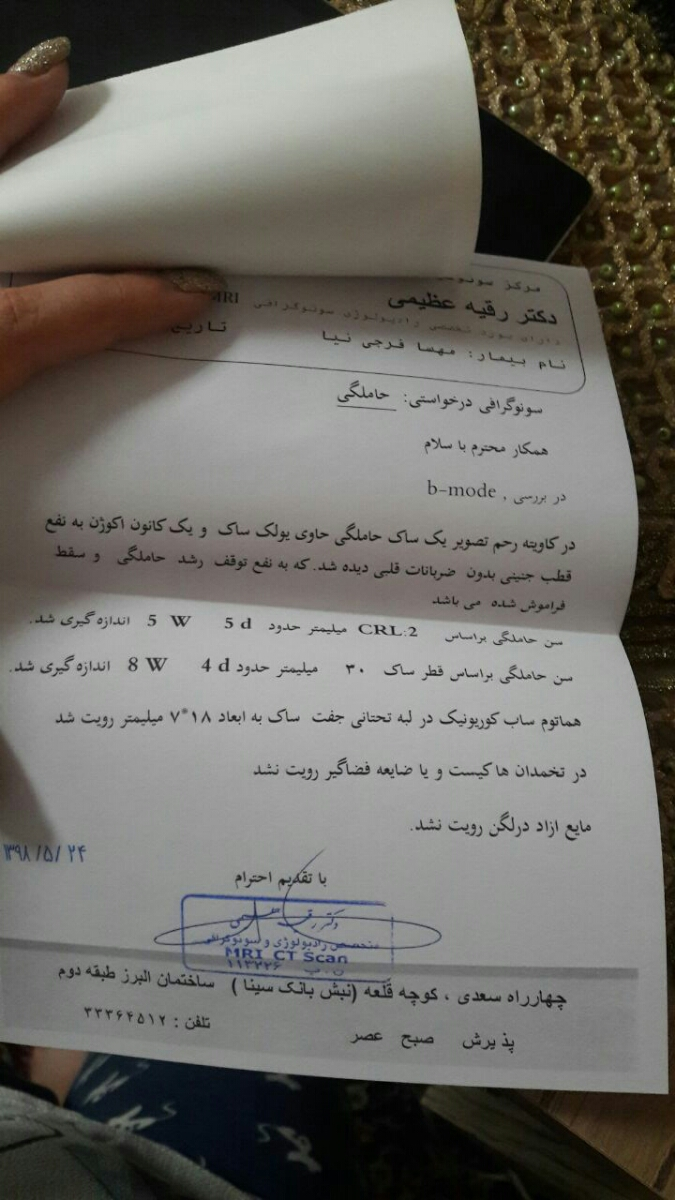 مرکز سونو
دکتر رقیه عظیمی
دارای بورد تخصصی رادیولوژی سونوگرافی MRI
نام بیمار: مهسا فرجی نیا تاریخ
سونوگرافی درخواستی: حاملگی
همکار محترم با سلام
در بررسی , b-mode
در کاویته رحم تصویر یک ساک حاملگی حاوی یولک ساک و یک کانون اکوژن به نفع
قطب جنینی بدون ضربانات قلبی دیده شد. که به نفع توقف رشد حاملگی و سقط
فراموش شده می باشد
سن حاملگی براساس CRL:2 میلیمتر حدود 5 W 5 d اندازه گیری شد.
سن حاملگی براساس قطر ساک ۳۰ میلیمتر حدود 8 W 4 d اندازه گیری شد.
هماتوم ساب کوریونیک در لبه تحتانی جفت ساک به ابعاد ۱۸*۷ میلیمتر رویت شد
در تخمدان ها کیست و یا ضایعه فضاگیر رویت نشد
مایع ازاد درلگن رویت نشد.
۱۳۹۸/۵/۲۴
با تقدیم احترام
متخصص رادیولوژی و سونوگرافی
MRI CT Scan
چهارراه سعدی ، کوچه قلعه (نبش بانک سینا ) ساختمان البرز طبقه دوم
تلفن : ۳۳۳۶۴۵۱۲
پذیرش صبح عصر